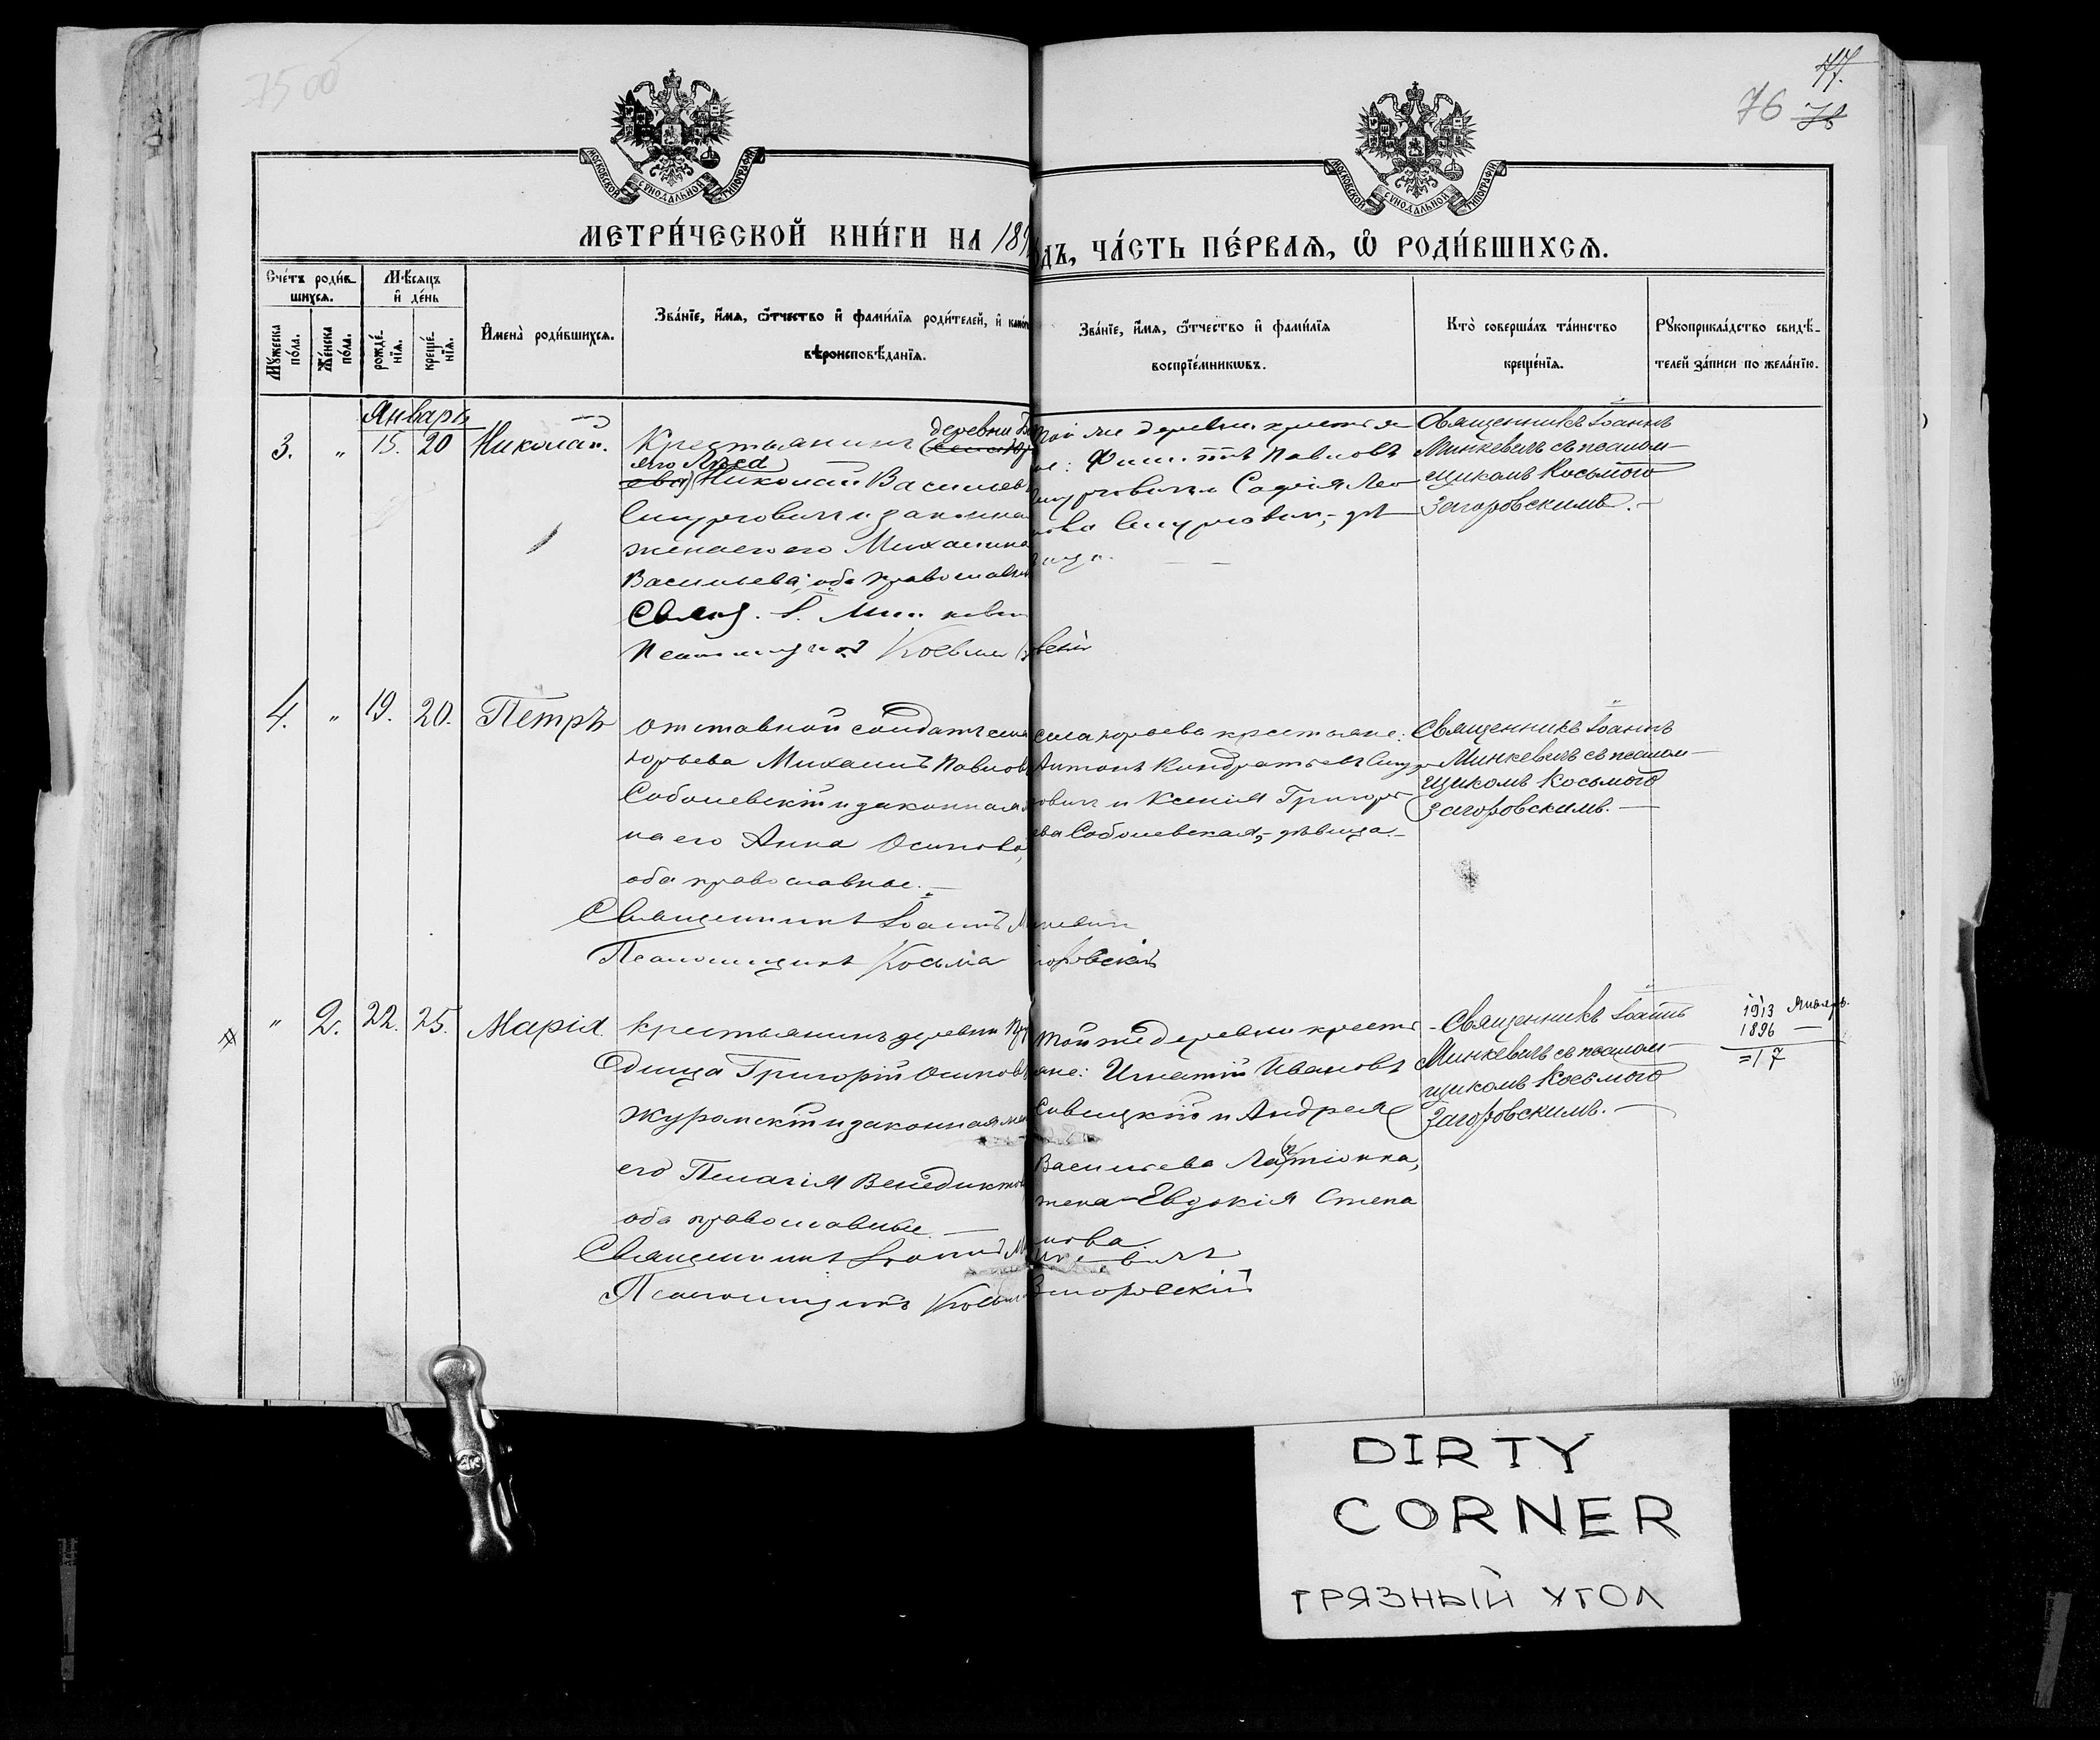 7500
77.
76 76
МОСКОВСКОЙ СѴНОДАЛЬНОЙ ТИПОГРАФІИ
МОСКОВСКОЙ СѴНОДАЛЬНОЙ ТИПОГРАФІИ
МЕТРИ́ЧЕСКОЙ КНИ́ГИ НА 189
ДЪ, ЧА́СТЬ ПЕ́РВАѦ, Ѽ РОДИ́ВШИХСѦ.
Сче́тъ роди́в-
шихсѧ.
Мꙋ́жеска по́ла.
Же́нска по́ла.
Мѣ́сѧцъ
и҆ де́нь
рожде́-
нїѧ.
креще́-
нїѧ.
И҆мена̀ роди́вшихсѧ.
Зва́нїе, и҆́мѧ, ѻ҆́тчество и҆ фами́лїѧ роди́телей, и҆
вѣроисповѣ́данїѧ.
Зва́нїе, и҆́мѧ, ѻ҆́тчество и҆ фами́лїѧ
воспрїе́мникѡвъ.
Кто̀ соверша́лъ та́инство
креще́нїѧ.
Рꙋкоприкла́дство свидѣ́-
телей за́писи по жела́нїю.
Январь
3. " 15. 20 Николай.
Крестьянинъ деревни
Николай Василевъ
Сацукович и законная
жена его Михалина
Васильева, оба православные
Свящ. І. Мин кевич
Псаломщикъ Косьма вскій
той же деревни крестья
не: Филиппъ Павловъ
и Софія Лео
нова дѣ
вица.
Священникъ Іоаннъ
Минкевичъ съ псалом-
щикомъ Косьмою
Загоровскимъ.
4. " 19. 20. Петръ
Отставной солдатъ села
Юрьева Михаилъ Павловъ
Соболевскій и законная
на его Анна Осипова,
оба православные.
Священникъ Іоаннъ Минкевич
Псаломщикъ Косьма Загоровскій
села Юрьева крестьяне:
Антонъ Кондратьевъ
и Ксенія Григорь
ева Соболевская, дѣвица
Священникъ Іоаннъ
Минкевичъ съ псалом-
щикомъ Косьмою
Загоровскимъ.
" 2. 22. 25. Марія.
Крестьянинъ деревни
Григорій Осиповъ
Журомскій и законная
его Пелагія Венедиктова
оба православные.
Священникъ Іоаннъ Минкевичъ
Псаломщикъ Косьма Загоровскій
той же деревни крестья
не: Игнатій Ивановъ
Савицкій и Андрея
Васильева
жена Евдокія Степа
нова.
Священникъ Іоаннъ
Минкевичъ съ псалом-
щикомъ Косьмою
Загоровскимъ.
1913 Январь.
1896 —
=17
DIRTY
CORNER
ГРЯЗНЫЙ УГОЛ